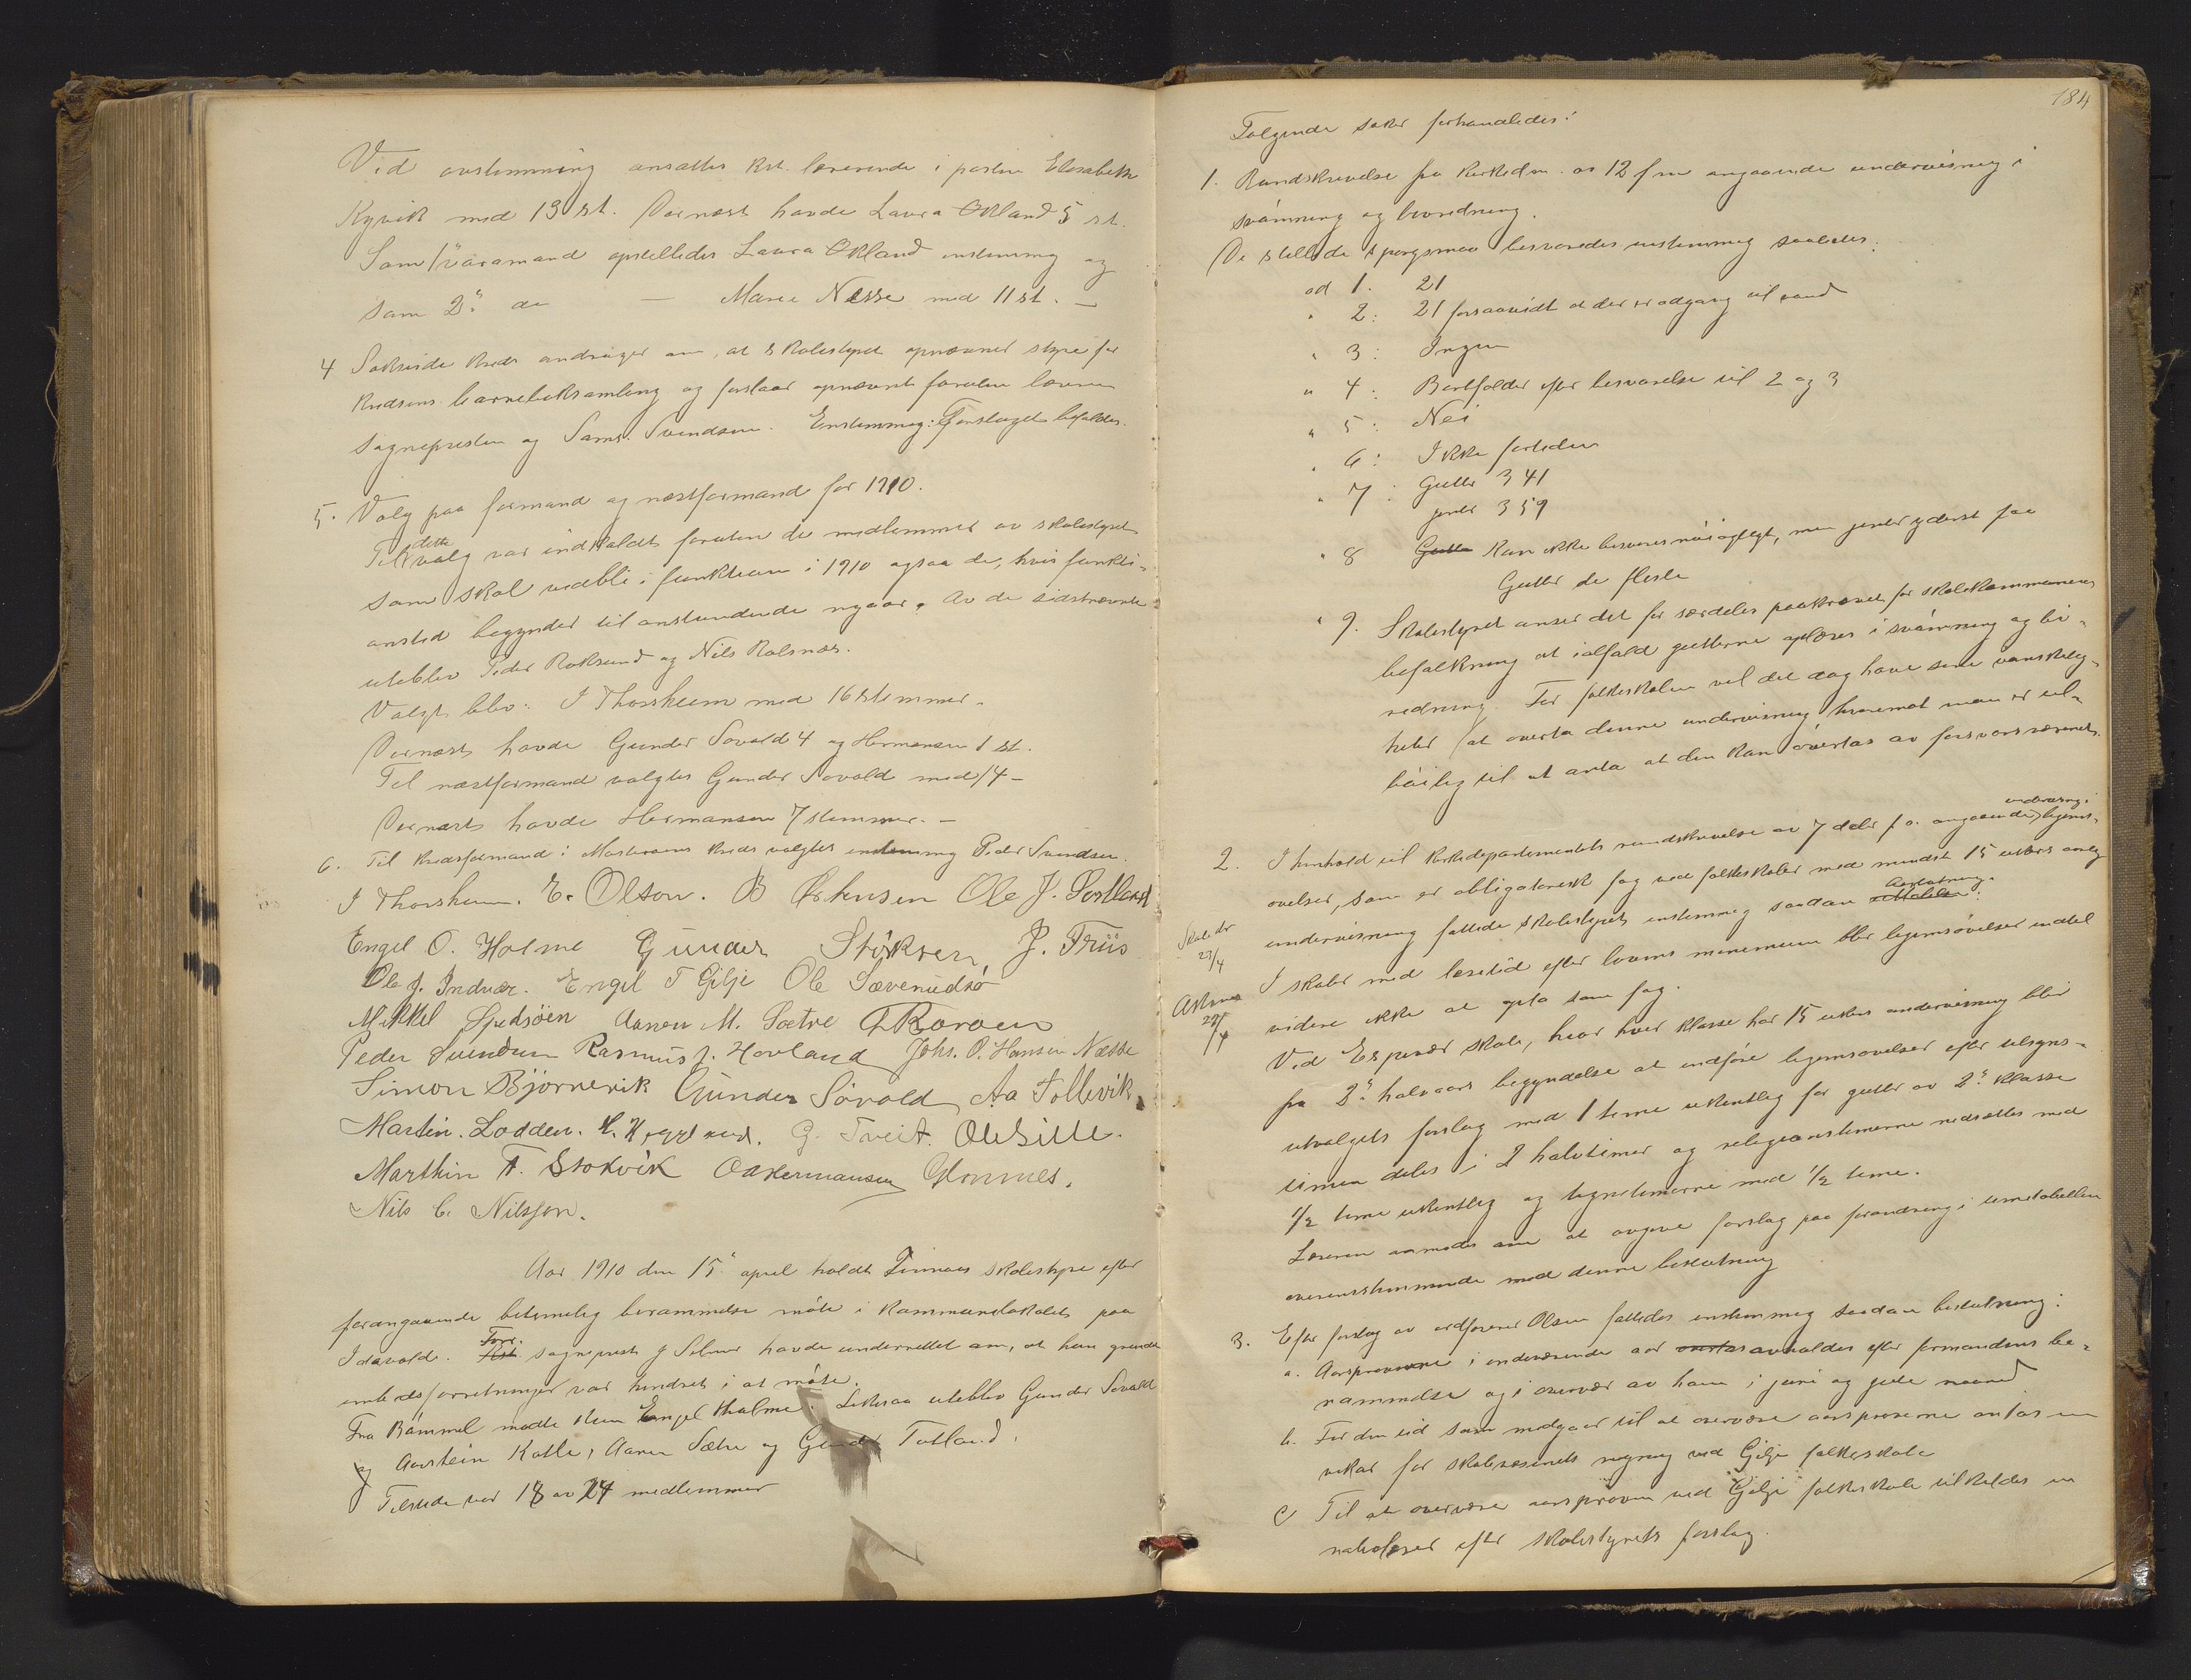 Ved avstemning ansattes kst. lærerinde i posten Elisabeth
Kyvik med 13 st. Dernæst havde Laura Økland 5 st.
Som 1ste varamand opstilledes Laura Økland enstemmig og
som 2. do — Marie Nesse med 11 st. —
4 Søkreds andrager om, at skolestyret opnævner styre for
kredsens barneboksamling og forslaar opnævnt foruten læreren
sognepresten og Saml. Svendsen. Enstemmig: Forslaget bifaldes.
5. Valg paa formand og næstformand for 1910.
Til dette valg var indkaldt foruten de medlemmer av skolestyret
som skal vedbli i funktion i 1910 ogsaa de, hvis funkti-
onstid begynder til anstundende nyaar. Av de sidstnævnte
uteblev Peder Roksund og Nils Rolsnæs.
Valgt blev: J Thorsheim med 16 stemmer.
Dernæst havde Gunder Søvold 4 og Hermansen 1 st.
Til næstformand valgtes Gunder Søvold med 14 –
Dernæst havde Hermansen 7 stemmer. –
6. Til kredsformand i Mosterøens kreds valgtes enstemmig Peder Svendsen.
J Thorsheim. E. Olson. B Ørkensen Ole J. Sortland
Engel O. Holme Gunder Støksen J. Friis
Ole J. Indvær. Engel T Gilje Ole Sævenudsø
Mikkel Spidsöen Aanen M. Sætre
Peder Svendsen Rasmus J. Hovland Johs. O. Hansen Næsse
Simon Björnevik Gunder Sövold Aa Tollevik
Martin. Lodden. G. Tveit. Ole Sille.
Marthin A. Stokvik O Hermansen
Nils C. Nilssen.
Aar 1910 den 15. april holdt Finnaas skolestyre efter
forangaaende betimelig berammelse møte i kommunelokalet paa
Idavold. Forr. sogneprest J Selmer havde underrettet om, at han grundet
embedsforretninger var hindret i at møte.
Fra Bømmel møtte Engel Holme. Likesaa uteblev Gunder Søvold
og Aanstein Katle, Aanen Sætre og Gunder Totland.
Tilstede var 18 av 24 medlemmer
184
Følgende saker forhandledes:
1. Rundskrivelse fra kirkedm. av 12 f m angaaende undervisning i
svømning og livredning.
De stillede spørgsmaal besvaredes enstemmig saaledes:
ad 1. 21
" 2: 21 forsaavidt at der er adgang til vand
" 3: Ingen
" 4: Bortfalder efter besvarelse til 2 og 3
" 5: Nei
" 6: Ikke fortiden
" 7: Gutter 341
jenter 359
" 8 Gutter Kan ikke besvares nøiagtigt, men jenter yderst faa
Gutter de fleste
" 9. Skolestyret anser det for særdeles paakrævet for skolekommunens
befolkning at ialfald gutterne oplæres i svømning og liv-
redning. For folkeskolen vil det dog have sine vanskelig-
heter at overta denne undervisning hvorimot man er til-
bøielig til at anta at den kan overtas av forsvarsvæsenet.
2. I henhold til kirkedepartementets rundskrivelse av 7 debr f a. angaaende undervisning i legems-
øvelser, som er obligatorisk fag ved folkeskoler med mindst 15 ukers aarlig
undervisning fattede skolestyret enstemmig saadan beslutning:
Skoledir
23/4
I skoler med læsetid efter lovens minimum blir legemsøvelser indtil
videre ikke at opta som fag.
Ved Espevær skole, hvor hver klasse har 15 ukers undervisning blir
fra 2. halvaars begyndelse at indføre legemsøvelser efter tilsyns-
utvalgets forslag med 1 time ukentlig for gutter av 2. klasse
timen deles i 2 halvtimer og religionstimerne nedsættes med
1/2 time ukentlig og tegnetimerne med 1/2 time.
Læreren anmodes om at avgive forslag paa forandring i timetabellen
overensstemmende med denne beslutning
3. Efter forslag av ordfører Olsen fattedes enstemmig saadan beslutning:
a. Aarsprøverne i indeværende aar avholdes efter formandens be-
rammelse og i overvær av ham i juni og juli maaned
b. For den tid som medgaar til at overvære aarsprøverne antas en
vikar for skolevæsenets regning ved Gilje folkeskole
c Til at overvære aarsprøven ved Gilje folkeskole tilkaldes en
nabolærer efter skolestyrets forslag.